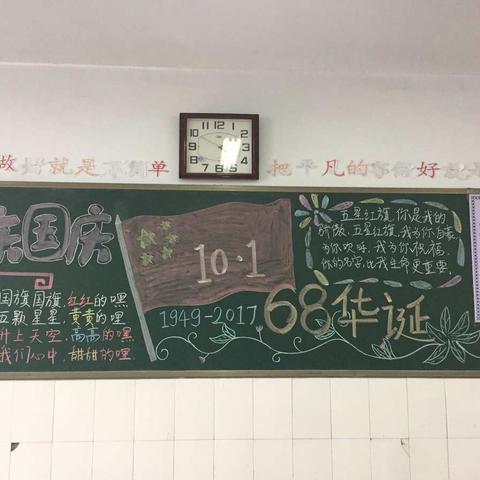 做好就是不简单 把平凡的事做好就是
庆国庆
国旗国旗,红红的嘿
五颗星星,黄黄的哩
升上天空,高高的嘿
我们心中,甜甜的哩
10·1
1949-2017
68华诞
五星红旗,你是我的
骄傲,五星红旗,我为你自豪,
为你欢呼,我为你祝福,
你的名字,比我生命更重要!